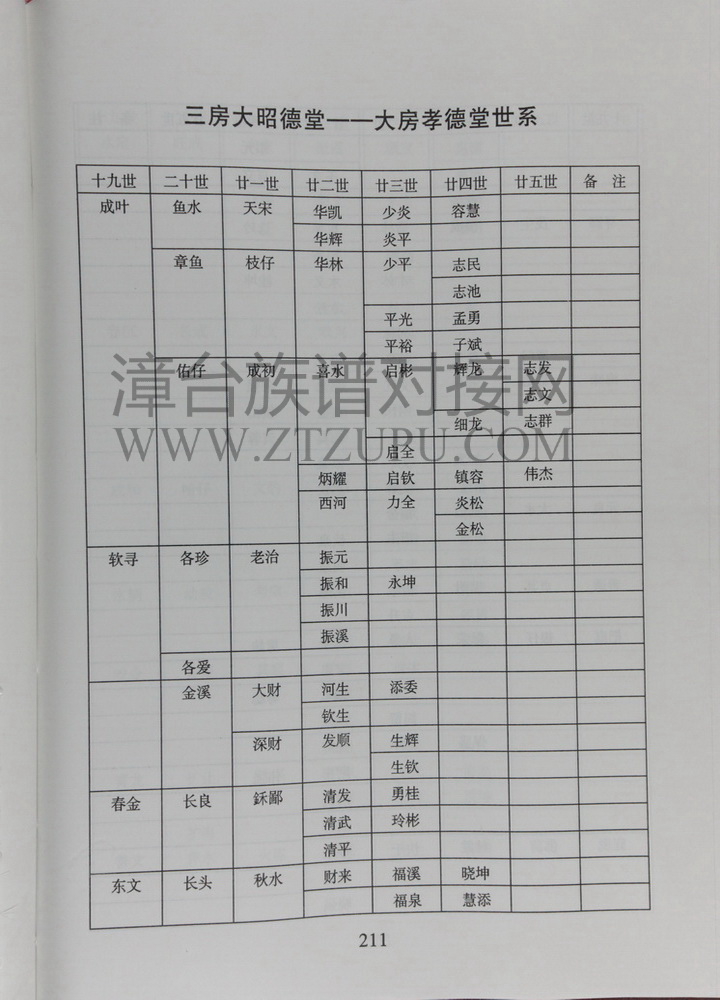 三房大昭德堂——大房孝德堂世系
十九世 二十世 廿一世 廿二世 廿三世 廿四世 廿五世 备 注
成叶 鱼水 天宋 华凯 少炎 容慧
华辉 炎平
章鱼 枝仔 华林 少平 志民
志池
平光 孟勇
平裕 子斌
佑仔 成初 喜水 启彬 辉龙 志发
志文
细龙 志群
启全
炳耀 启钦 镇容 伟杰
西河 力全 炎松
金松
软寻 各珍 老治 振元
振和 永坤
振川
振溪
各爱
金溪 大财 河生 添委
钦生
深财 发顺 生辉
生钦
春金 长良 鉌鄙 清发 勇桂
清武 玲彬
清平
东文 长头 秋水 财来 福溪 晓坤
福泉 慧添
211
漳台族谱对接网
WWW.ZTZUPU.COM